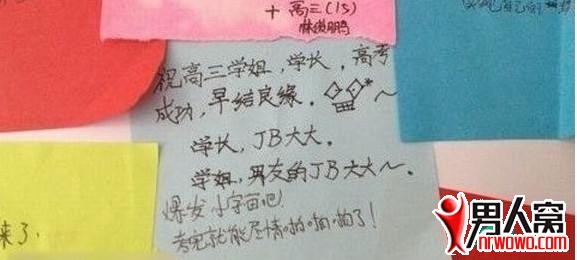 +高三(15)
祝高三学姐,学长,高考
成功,早结良缘.~
学长,JB大大.
学姐,男友的JB大大~.
爆发小宇宙吧
考完就能尽情啪啪啪了!
来了.
男人窝
nrwowo.com